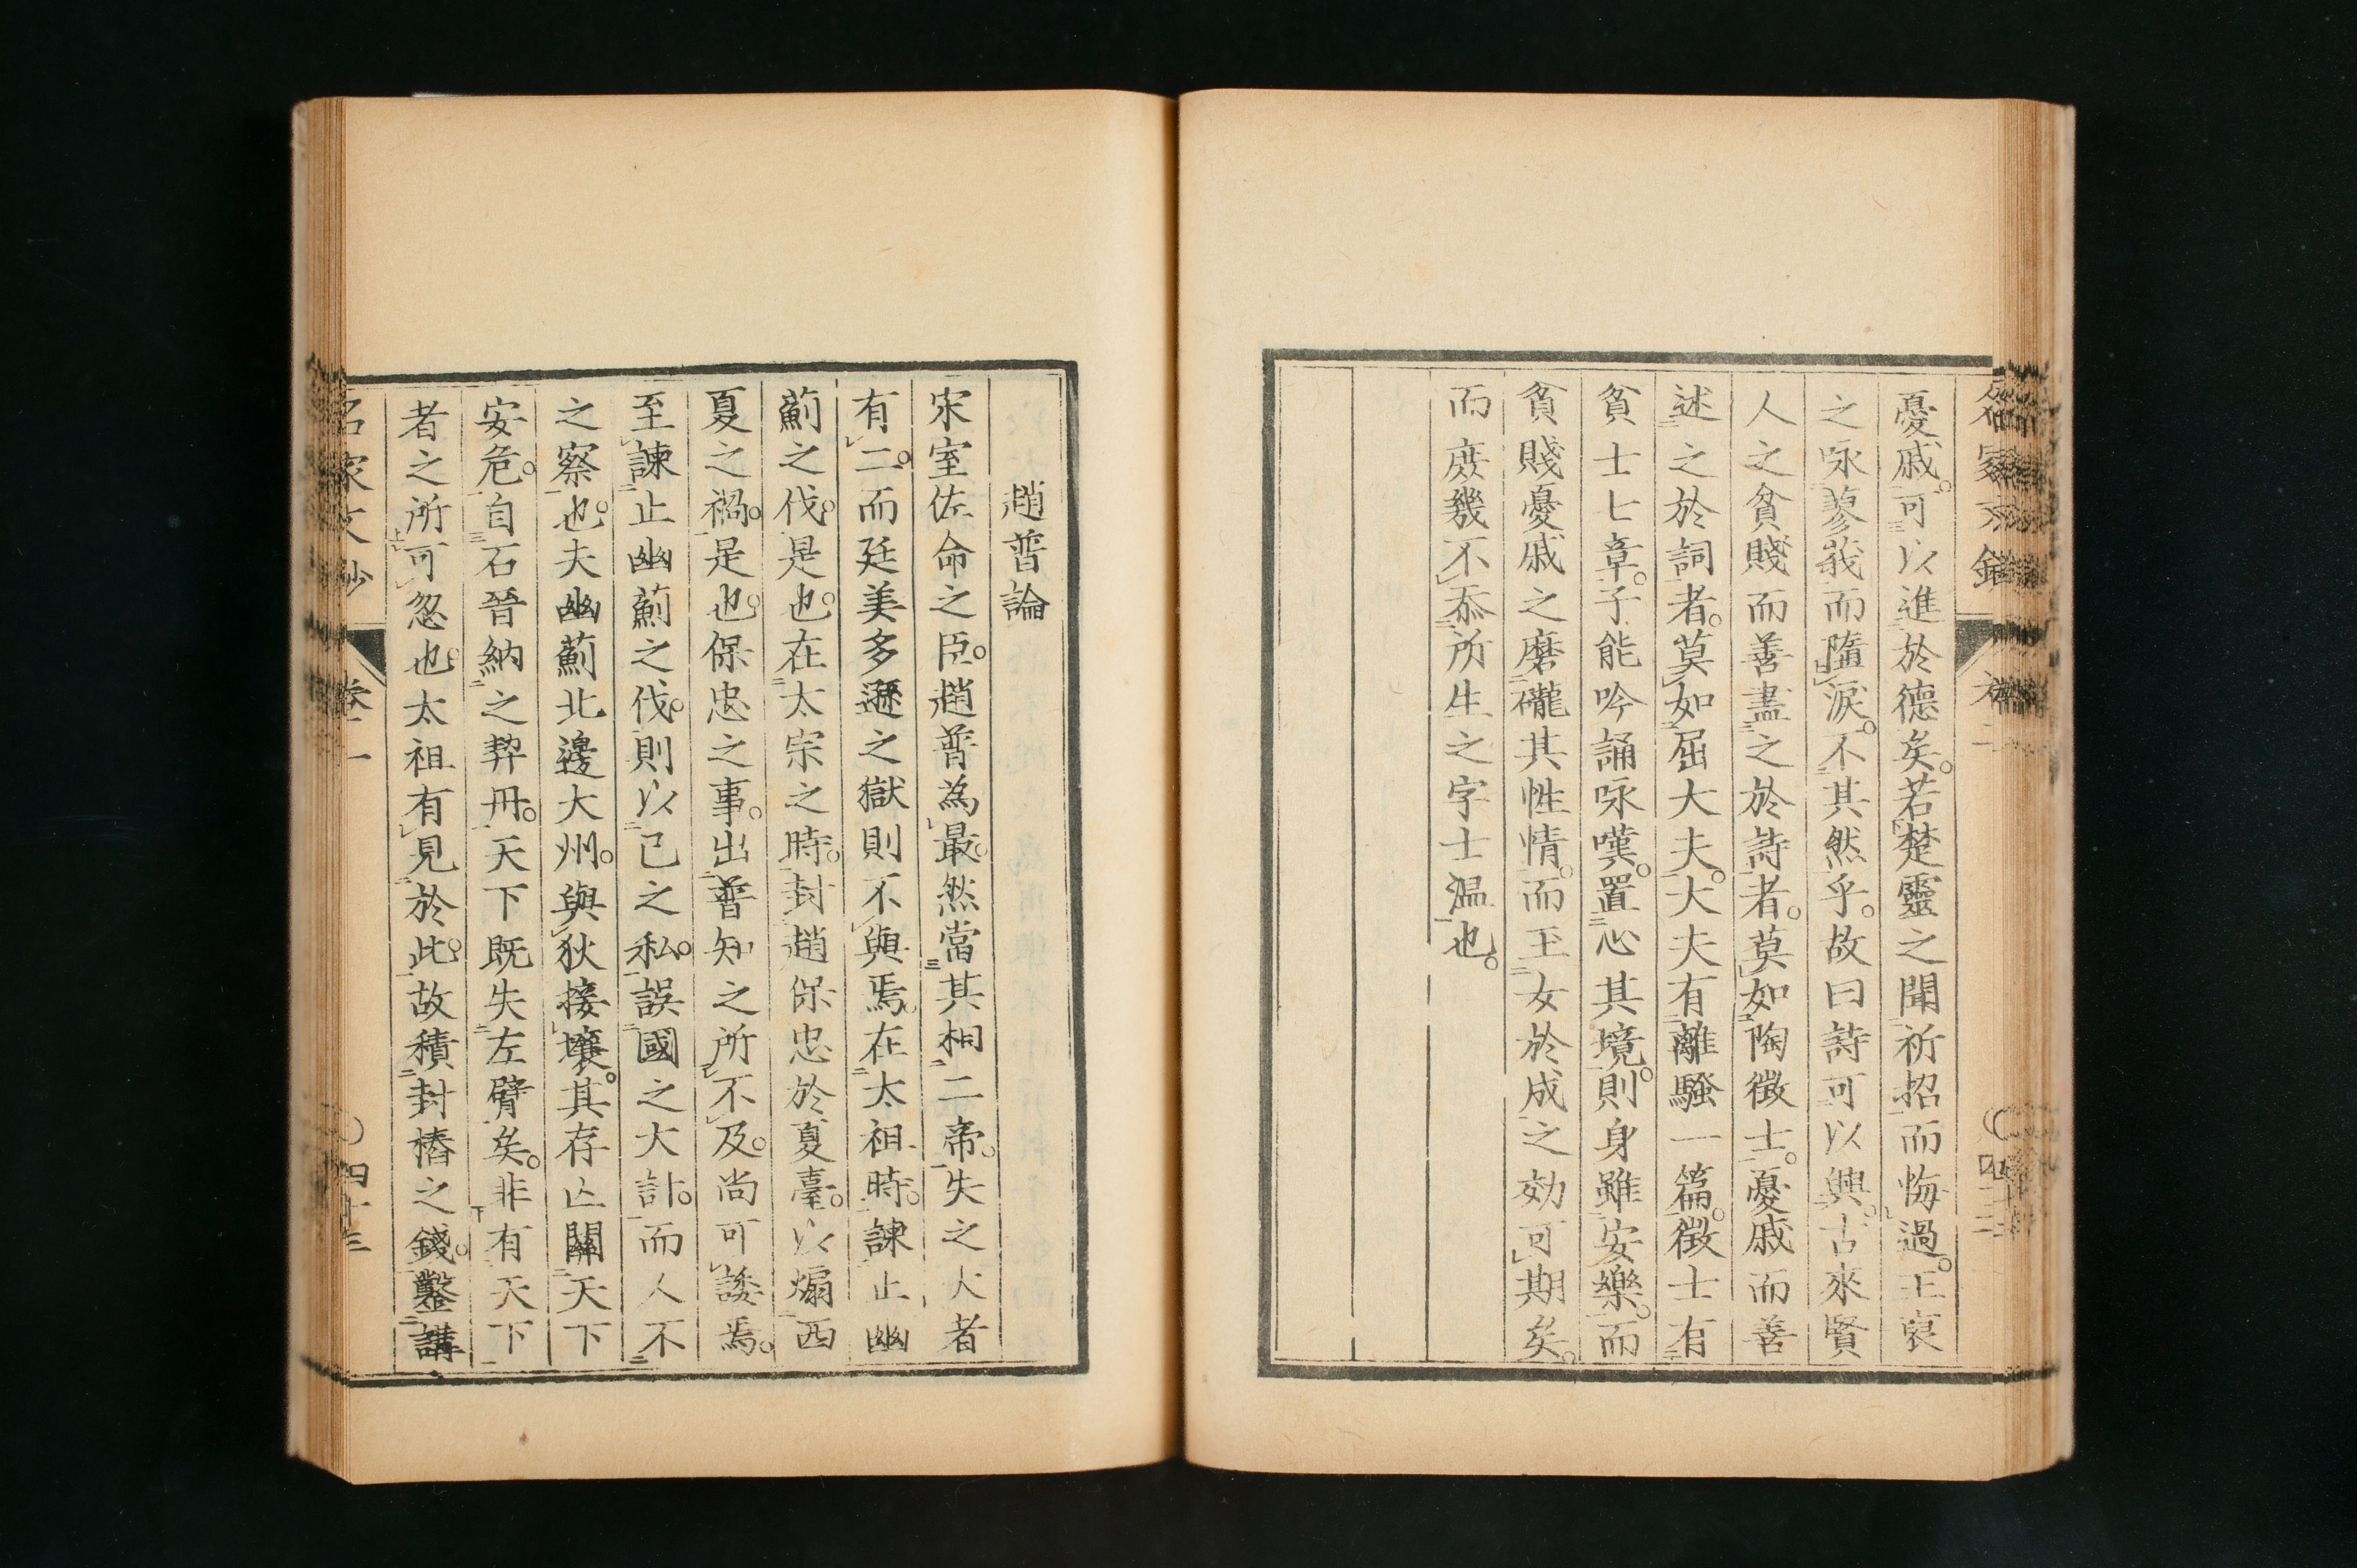 憂戚。可以進於德矣。若楚靈之聞祈招而悔過。王裒
之咏蓼莪而隨淚。不其然乎。故曰詩可以興。古來賢
人之貧賤而善盡之於詩者。莫如陶徵士。憂戚而善
述之於詞者。莫如屈大夫。大夫有離騷一篇。徵士有
貧士七章。子能吟誦咏嘆。置心其境。則身雖安樂。而
貧賤憂戚之磨礲其性情。而玉女於成之効可期矣。
而庶幾不忝所生之字士溫也。
趙普論
宋室佐命之臣。趙普為最。然當其相二帝。失之大者
有二。而廷美多遜之獄則不與焉。在太祖時。諫止幽
薊之伐。是也。在太宗之時。封趙保忠於夏臺。以煽西
夏之禍。是也。保忠之事。出普知之所不及。尚可諉焉。
至諫止幽薊之伐。則以己之私。誤國之大計。而人不
之察也。夫幽薊北邊大州。與狄接壤。其存亡關天下
安危。自石晉納之契丹。天下既失左臂矣。非有天下
者之所可忽也。太祖有見於此。故積封樁之錢。鑿講
名家文抄 卷一 〇四十三